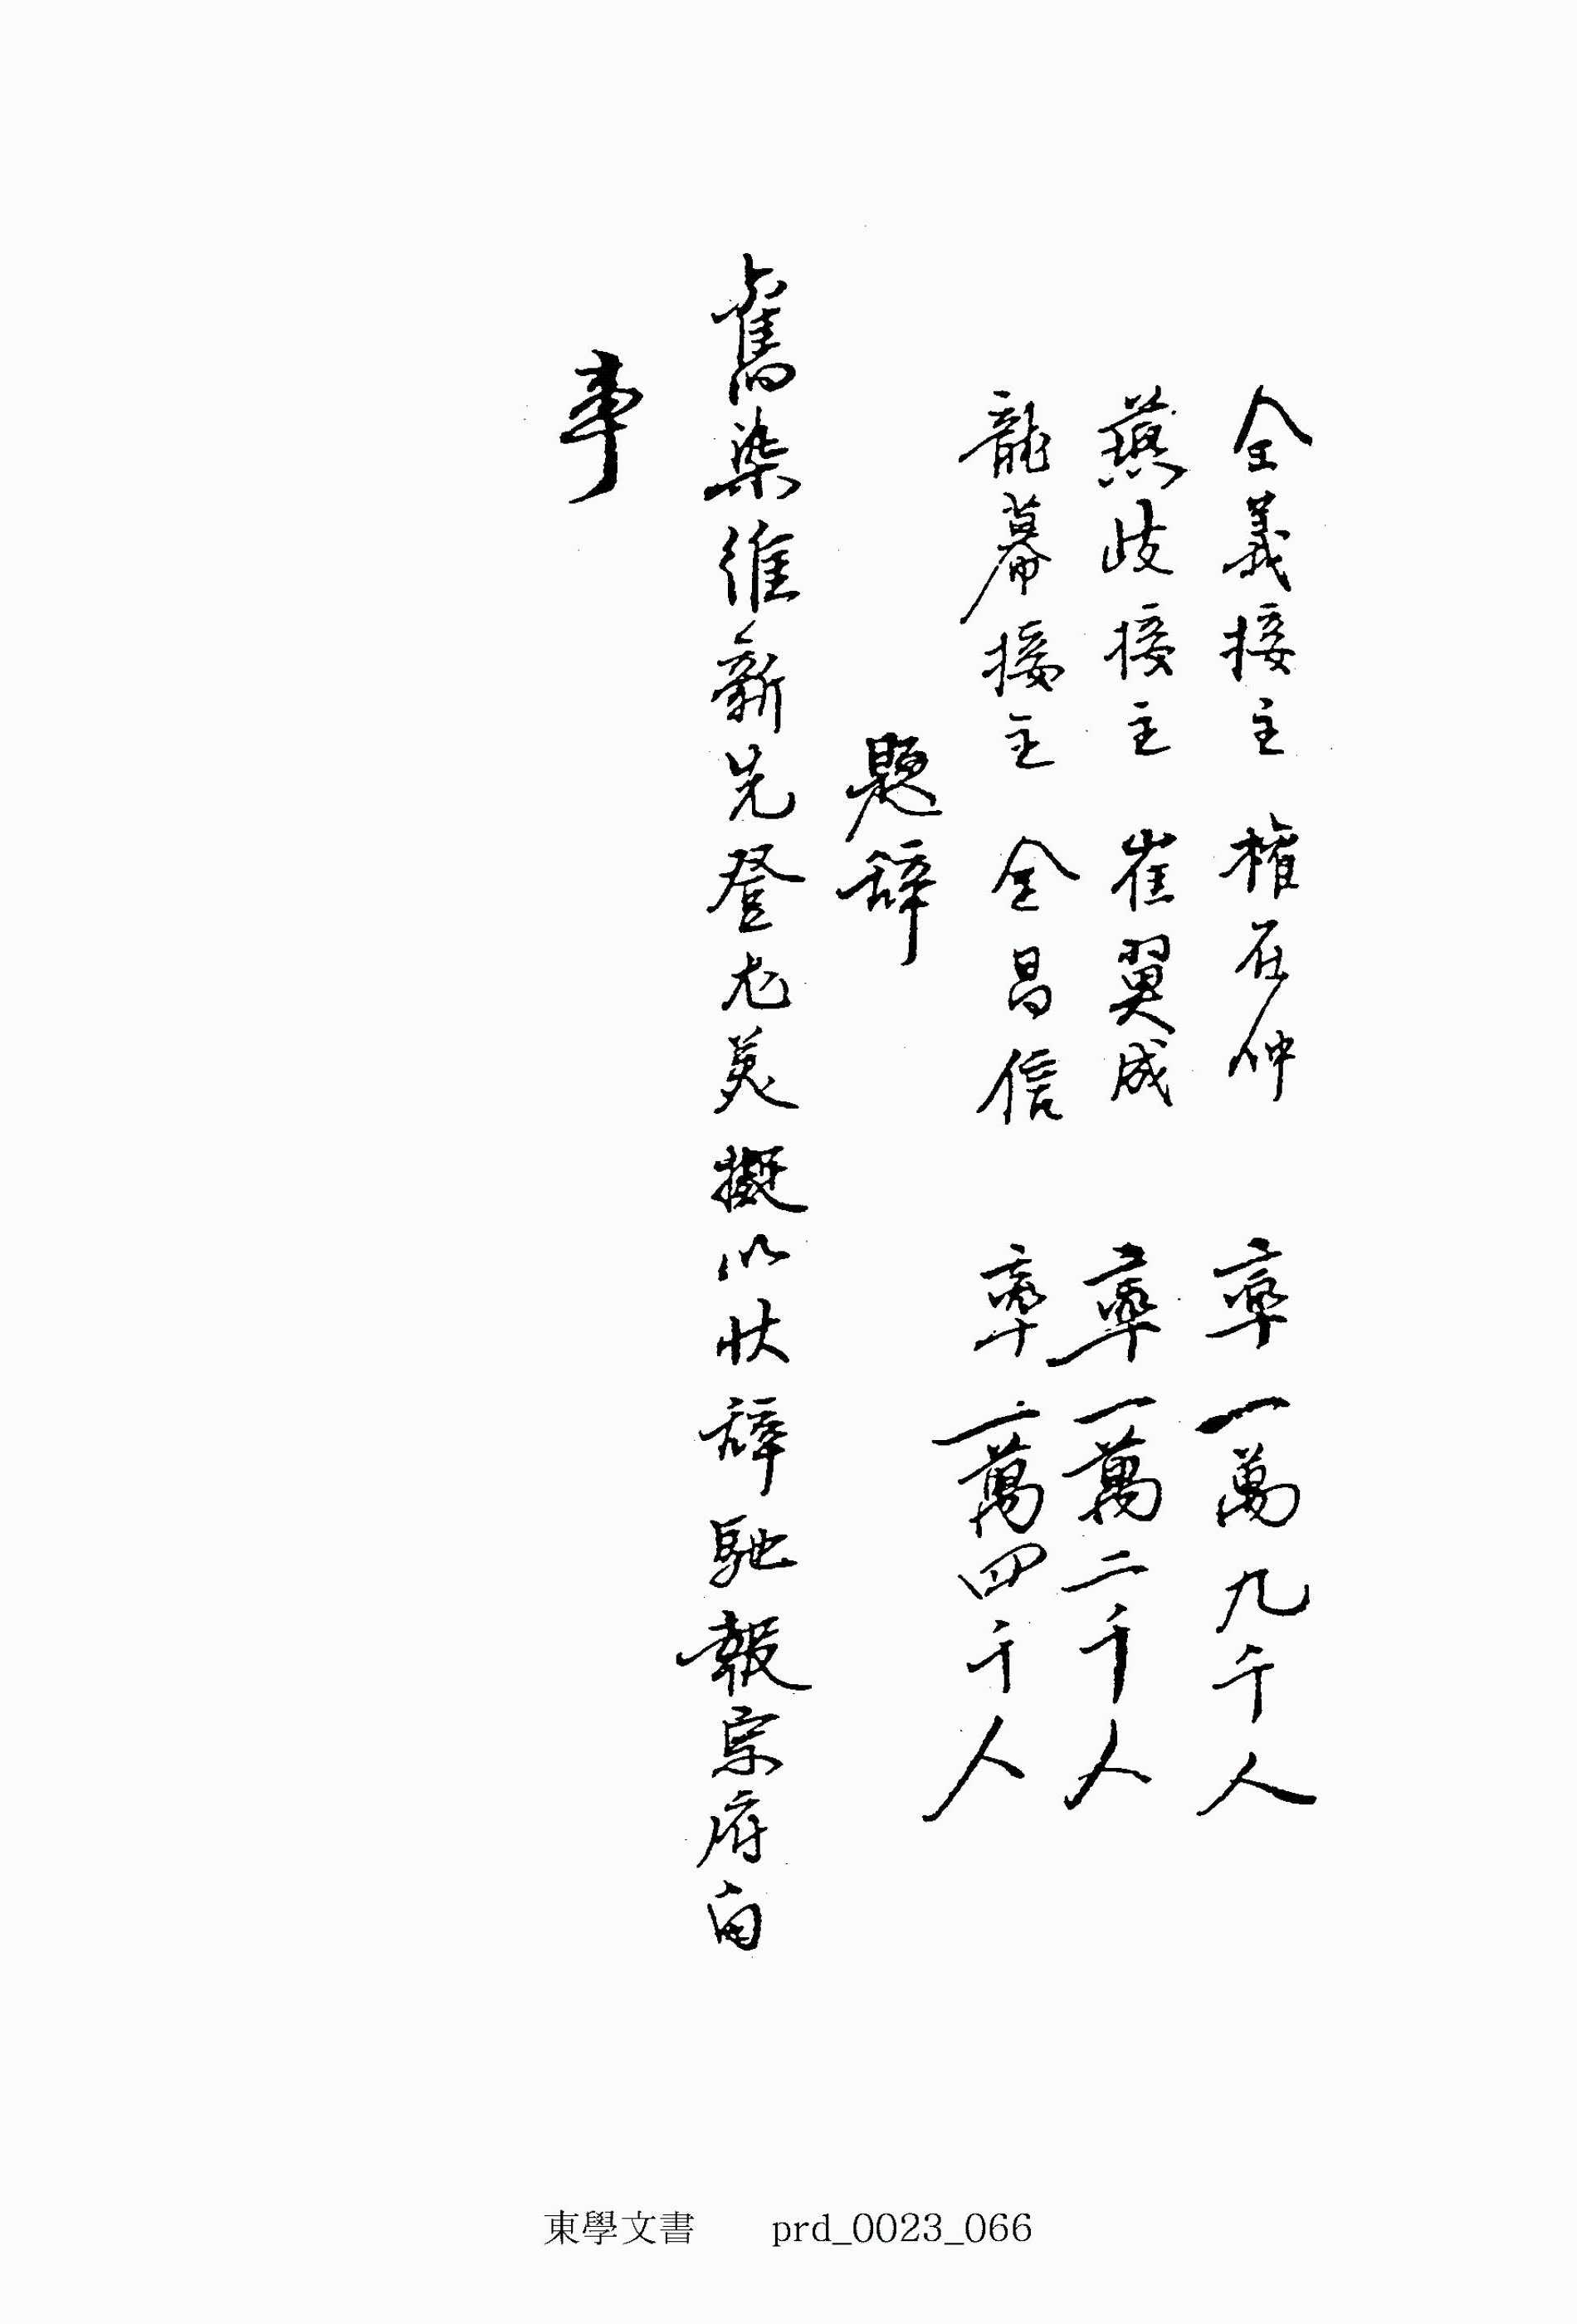 全義接主 權在仲 率一萬九千人
燕歧接主 崔翼成 率一萬二千人
龍幕接主 金昌信 率二萬四千人
題辞
舊染維新先登尤美擬以狀辞馳報宗府向
事
東學文書 prd_0023_066